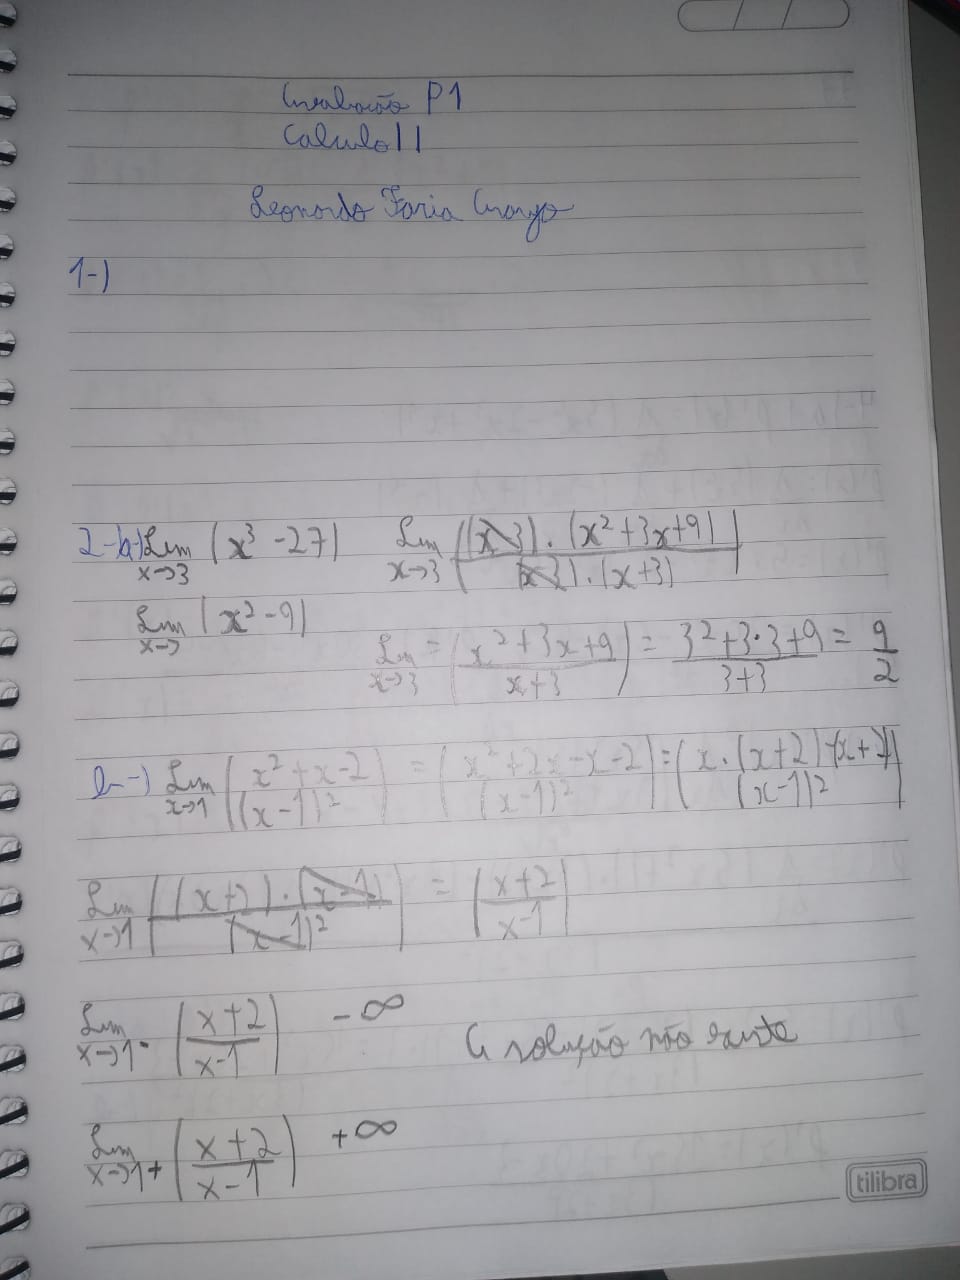 Avaliação P1
Calculo II
Leonardo Faria
1-)
2-a-) Lim x->3 (x³ - 27)    Lim x->3 ((x-3).(x²+3x+9) / (x-3).(x+3))
Lim x-> (x² - 9)
Lim x->3 = (x²+3x+9 / x+3) = 3²+3·3+9 / 3+3 = 9/2
b-) Lim x->1 (x²+x-2 / (x-1)²) = (x²+2x-x-2 / (x-1)²) = (x.(x+2)-(x+2) / (x-1)²)
Lim x->1 ((x+2).(x-1) / (x-1)²) = (x+2 / x-1)
Lim x->1- (x+2 / x-1)  -∞    A solução não existe
Lim x->1+ (x+2 / x-1)  +∞
tilibra